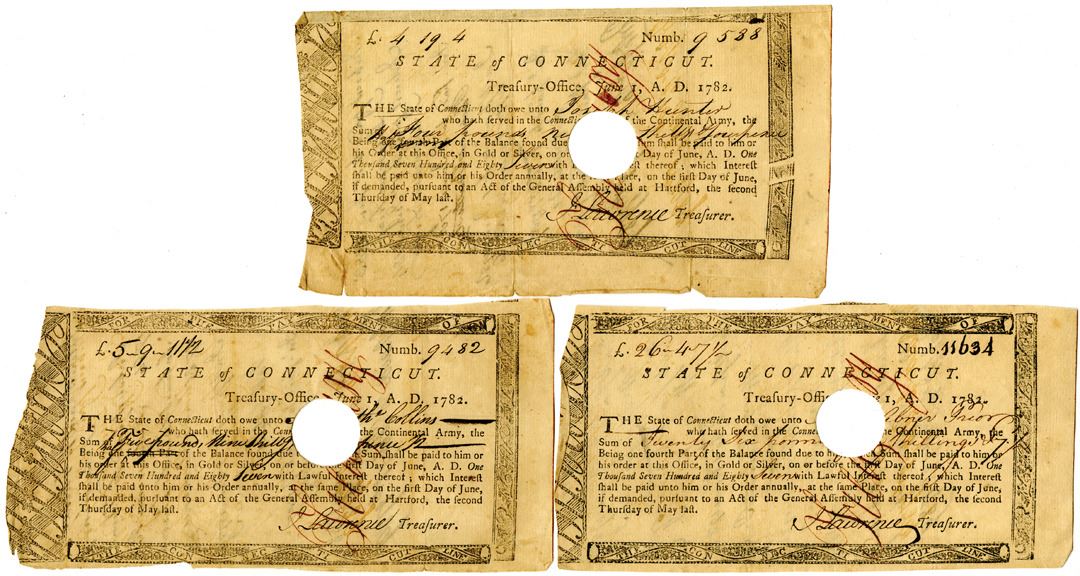 £. 4 19 4 Numb. 9 538
STATE of CONNECTICUT.
Treasury-Office, June 1, A. D. 1782.
THE State of Connecticut doth owe unto Hunter
who hath served in the Connec of the Continental Army, the
Sum of Four pounds shills fourpence
Being one fourth Part of the Balance found due him shall be paid to him or
his Order at this Office, in Gold or Silver, on or st Day of June, A. D. One
Thousand Seven Hundred and Eighty Seven with st thereof; which Interest
shall be paid unto him or his Order annually, at the Place, on the first Day of June,
if demanded, pursuant to an Act of the General Assembly held at Hartford, the second
Thursday of May last.
J Lawrence Treasurer.
THE CON NEC TI CUT LINE
FOR THE PAY MENT OF
£. 5 - 9 - 11 1/2 Numb. 9482
STATE of CONNECTICUT.
Treasury-Office, June 1, A. D. 1782.
THE State of Connecticut doth owe unto Collins
who hath served in the Conne the Continental Army, the
Sum of Five pounds, nine shillgs
Being one fourth Part of the Balance found due Sum shall be paid to him or
his order at this Office, in Gold or Silver, on or before first Day of June, A. D. One
Thousand Seven Hundred and Eighty Seven with Lawful Interest thereof; which Interest
shall be paid unto him or his Order annually, at the same Place, on the first Day of June,
if demanded, pursuant to an Act of the General Assembly held at Hartford, the second
Thursday of May last.
J Lawrence Treasurer.
THE CON NEC TI CUT LINE
FOR THE PAY MENT OF
£. 26 - 4 7 1/2 Numb. 11634
STATE of CONNECTICUT.
Treasury-Office, June 1, A. D. 1782.
THE State of Connecticut doth owe unto Abner
who hath served in the Connec the Continental Army, the
Sum of Twenty Six pounds shillings
Being one fourth Part of the Balance found due to hi Sum shall be paid to him or
his order at this Office, in Gold or Silver, on or before the first Day of June, A. D. One
Thousand Seven Hundred and Eighty Seven with Lawful Interest thereof; which Interest
shall be paid unto him or his Order annually, at the same Place, on the first Day of June,
if demanded, pursuant to an Act of the General Assembly held at Hartford, the second
Thursday of May last.
J Lawrence Treasurer.
THE CON NEC TI CUT LINE